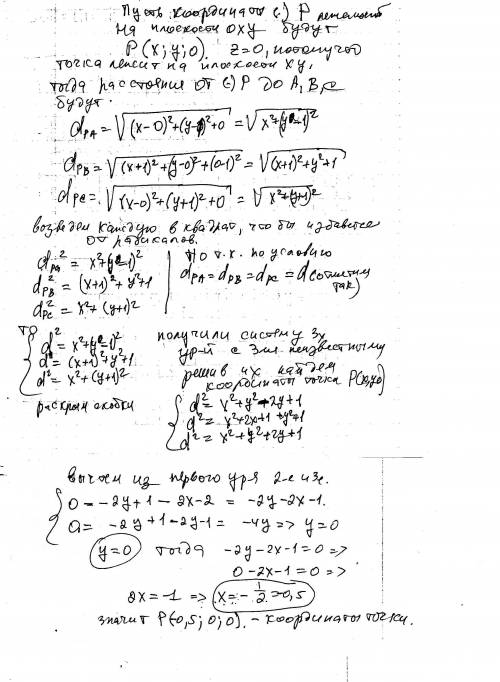 Пусть координаты (·) P лежащей
на плоскости OXY будут
P(x; y; 0). z=0, потому что
точка лежит на плоскости xy,
тогда расстояния от (·) P до A, B, C
будут.
d_PA = √((x-0)²+(y-1)²+0) = √(x²+(y-1)²)
d_PB = √((x+1)²+(y-0)²+(0-1)²) = √((x+1)²+y²+1)
d_PC = √((x-0)²+(y+1)²+0) = √(x²+(y+1)²)
возведем каждую в квадрат, что бы избавится
от радикалов.
d²_PA = x²+(y-1)²
d²_PB = (x+1)²+y²+1
d²_PC = x²+(y+1)²
Но т.к. по условию
d_PA = d_PB = d_PC = d (
так)
то
d² = x²+(y-1)²
d² = (x+1)²+y²+1
d² = x²+(y+1)²
получили систему 3х
ур-й с 3мя неизвестными
решив их найдем
координаты точки P(x;y;0)
раскрыли скобки
d² = x²+y²-2y+1
d² = x²+2x+1+y²+1
d² = x²+y²+2y+1
вычтем из первого ур-я 2-е и 3е.
0 = -2y+1-2x-2 = -2y-2x-1.
0 = -2y+1-2y-1 = -4y => y=0
y=0 тогда -2y-2x-1=0 =>
0-2x-1=0 =>
2x=-1 => x=-1/2=0,5
значит P(-0,5; 0; 0). - координаты точки.